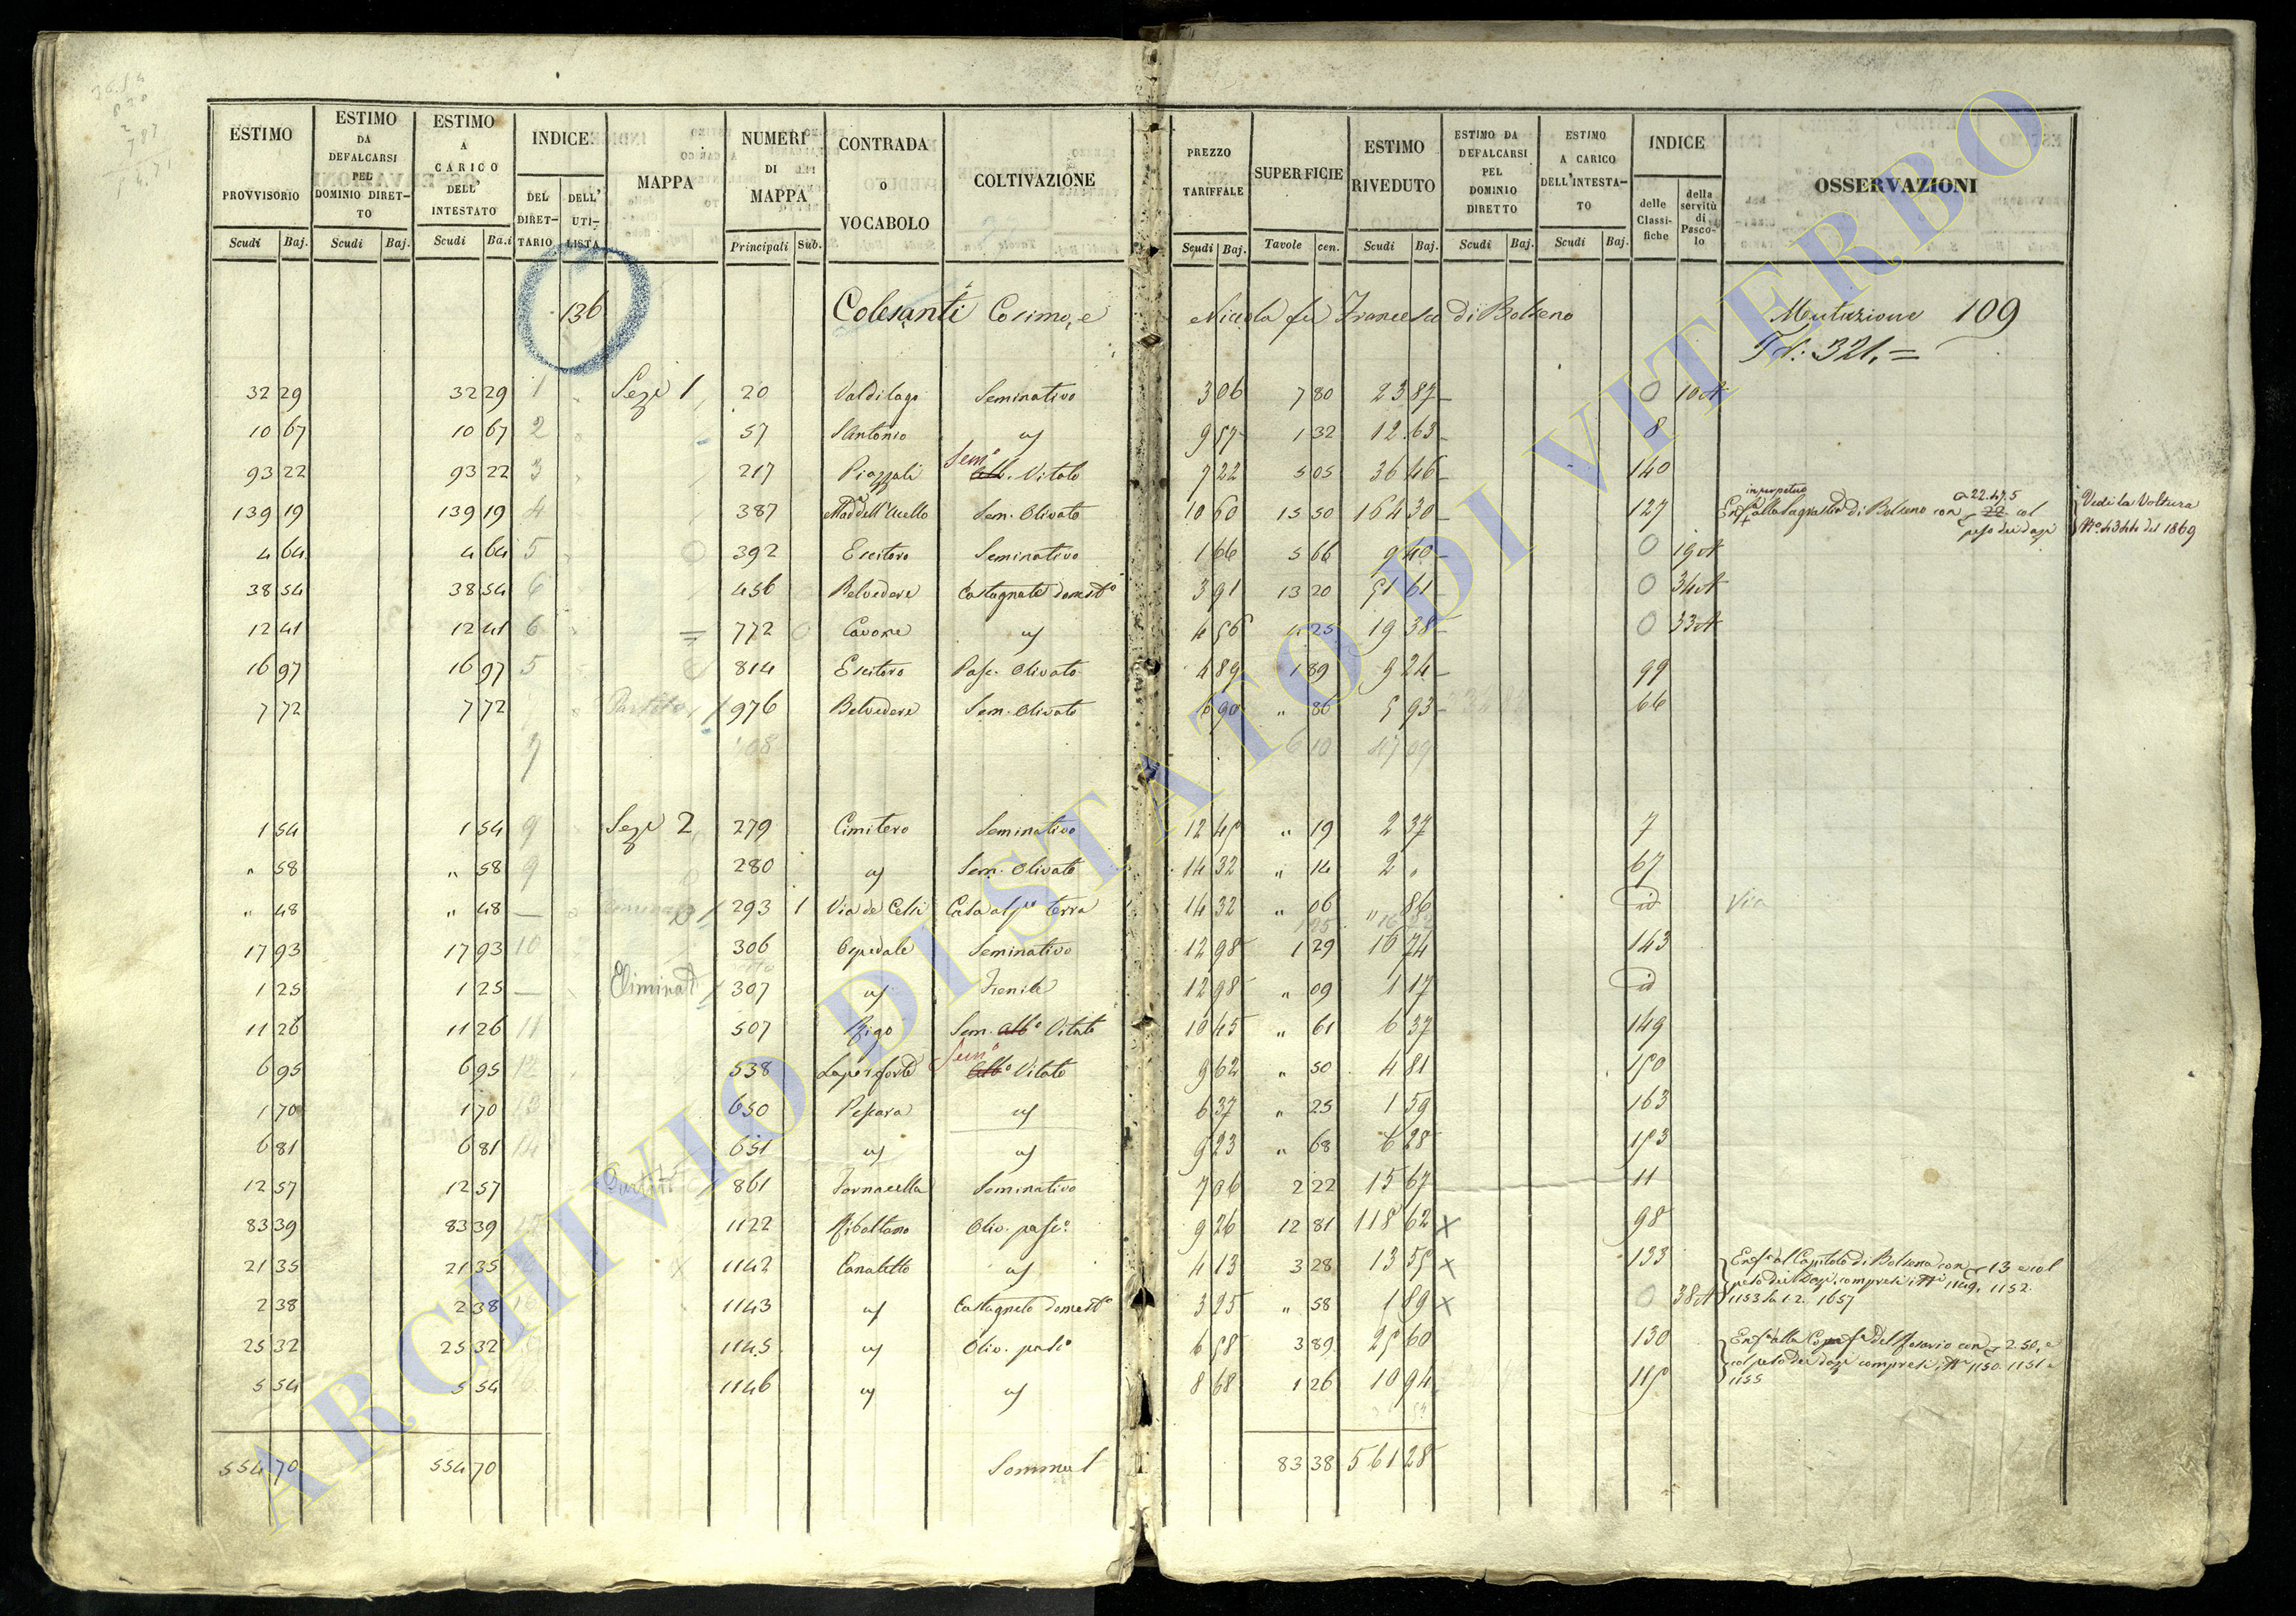 ESTIMO PROVVISORIO Scudi Baj. | ESTIMO DA DEFALCARSI PEL DOMINIO DIRETTO Scudi Baj. | ESTIMO A CARICO DELL' INTESTATO Scudi Ba.i | INDICE DEL DIRETTARIO DELL' UTILISTA | MAPPA | NUMERI DI MAPPA Principali Sub. | CONTRADA O VOCABOLO | COLTIVAZIONE | PREZZO TARIFFALE Scudi Baj. | SUPERFICIE Tavole cen. | ESTIMO RIVEDUTO Scudi Baj. | ESTIMO DA DEFALCARSI PEL DOMINIO DIRETTO Scudi Baj. | ESTIMO A CARICO DELL'INTESTATO Scudi Baj. | INDICE delle Classifiche della servitù di Pascolo | OSSERVAZIONI
136 Colesanti Cosimo, e Nicola fu Francesco di Bolseno Mutazione 109
321. =
32 29 32 29 1 Sez.e 1 20 Valdilago Seminativo 3 06 7 80 23 87 0 10 A
10 67 10 67 2 57 S Antonio " 9 57 1 32 12 63 8
93 22 93 22 3 217 Piazzali Sem.o Vitato 7 22 5 05 36 46 140
139 19 139 19 4 387 Mad.a dell'Uccello Sem. Olivato 10 60 15 50 164 30 127 in perpetuo Enf. alla Sagrestia di Bolseno con 22.47.5 col peso dei dazi Vedi la Voltura del 1869
4 64 4 64 5 392 Seminativo 1 66 5 66 9 40 0 19 A
38 54 38 54 6 456 Belvedere Castagnato domest.o 3 91 13 20 51 61 0 34 A
12 41 12 41 6 772 Cavone " 4 56 4 25 19 38 0 33 A
16 97 16 97 5 814 Pasc. Olivato 4 89 1 89 9 24 99
7 72 7 72 Partito 976 Belvedere Sem. Olivato 6 90 " 86 5 93 66
9 6 10 47 09
1 54 1 54 9 Sez.e 2 279 Cimitero Seminativo 12 45 " 19 2 37 7
" 58 " 58 9 280 " Sem. Olivato 14 32 " 14 2 " 67
" 48 " 48 293 1 Via de Celli Casa al p.o terra 14 32 " 06 " 86 id Via
17 93 17 93 10 306 Ospedale Seminativo 12 98 1 29 16 74 143
1 25 1 25 Eliminat 307 " Fienile 12 98 " 09 1 17 id
11 26 11 26 11 507 Rigo Sem. Vitato 10 45 " 61 6 37 149
6 95 6 95 12 538 Sem.o Vitato 9 62 " 50 4 81 150
1 70 1 70 13 650 Pescara " 6 37 " 25 1 59 163
6 81 6 81 14 651 " " 9 23 " 68 6 28 153
12 57 12 57 Partito 861 Fornacella Seminativo 7 06 2 22 15 67 11
83 39 83 39 1122 Oliv. pasc.o 9 26 12 81 118 62 x 98
21 35 21 35 1142 Canaletto " 4 13 3 28 13 55 x 133 Enf. al Capitolo di Bolsena con 13 e col
2 38 2 38 1143 " Castagneto domest.o 3 25 " 58 1 89 x 0 38 A peso dei Dazi, compresi i N.i 1149, 1152. 1153 1657
25 32 25 32 1145 " Oliv. pasc.o 6 58 3 89 25 60 130 Enf. alla del Rosario con 2.50, e
5 54 5 54 1146 " " 8 68 1 26 10 94 115 col peso dei dazi compresi i N.i 1150. 1151 e 1155
554 70 554 70 83 38 561 28
ARCHIVIO DI STATO DI VITERBO